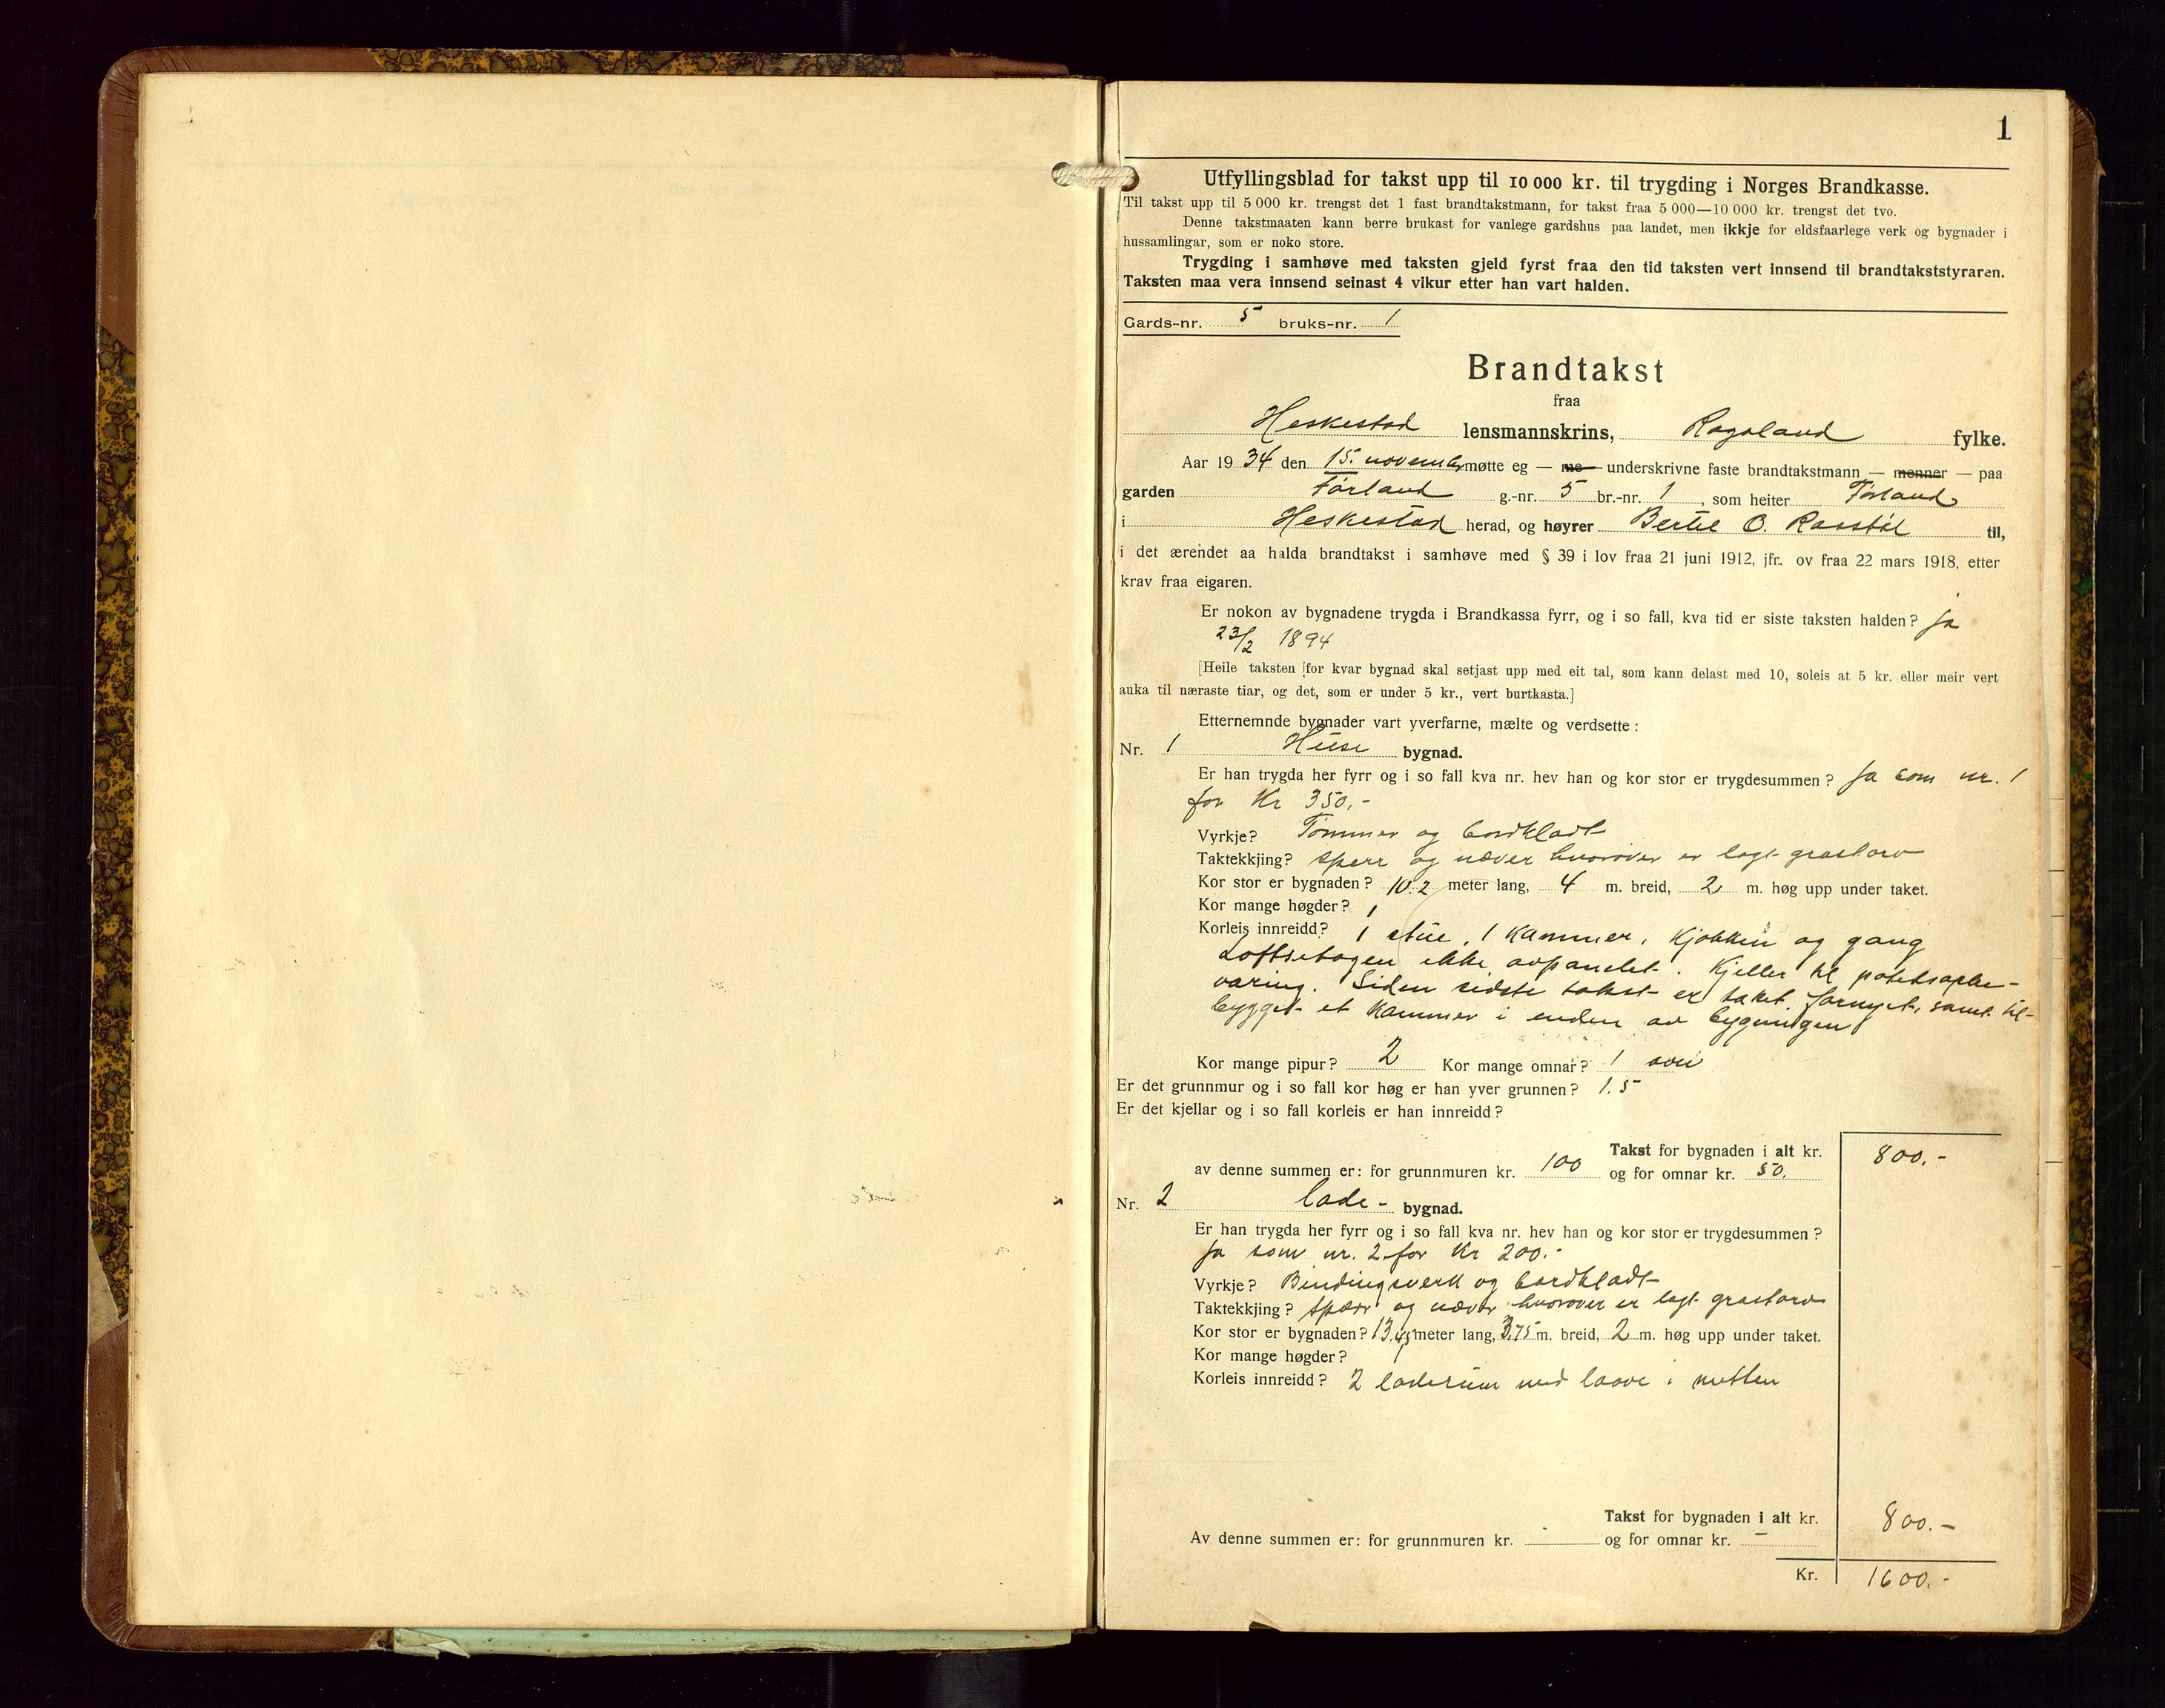 1
Utfyllingsblad for takst upp til 10 000 kr. til trygding i Norges Brandkasse.
Til takst upp til 5 000 kr. trengst det 1 fast brandtakstmann, for takst fraa 5 000—10 000 kr. trengst det tvo.
Denne takstmaaten kann berre brukast for vanlege gardshus paa landet, men ikkje for eldsfaarlege verk og bygnader i
hussamlingar, som er noko store.
Trygding i samhøve med taksten gjeld fyrst fraa den tid taksten vert innsend til brandtakststyraren.
Taksten maa vera innsend seinast 4 vikur etter han vart halden.
Gards-nr. 5 bruks-nr. 1
Brandtakst
fraa
Heskestad lensmannskrins, Rogaland fylke.
Aar 1934 den 15. november møtte eg — me — underskrivne faste brandtakstmann — menner — paa
garden Førland g.-nr. 5 br.-nr. 1, som heiter Førland
i Heskestad herad, og høyrer Bertil O. Rasstøl til,
i det ærendet aa halda brandtakst i samhøve med § 39 i lov fraa 21 juni 1912, jfr. ov fraa 22 mars 1918, etter
krav fraa eigaren.
Er nokon av bygnadene trygda i Brandkassa fyrr, og i so fall, kva tid er siste taksten halden? Ja
23/2 1894
[Heile taksten for kvar bygnad skal setjast upp med eit tal, som kann delast med 10, soleis at 5 kr. eller meir vert
auka til næraste tiar, og det, som er under 5 kr., vert burtkasta.]
Etternemnde bygnader vart yverfarne, mælte og verdsette :
Nr. 1 Huse bygnad.
Er han trygda her fyrr og i so fall kva nr. hev han og kor stor er trygdesummen? Ja som nr. 1
for Kr 350,-
Vyrkje? Tømmer og bordkladt
Taktekkjing? sperr og næver hvorover er lagt grastorv
Kor stor er bygnaden? 10.2 meter lang, 4 m. breid, 2 m. høg upp under taket.
Kor mange høgder? 1
Korleis innreidd? 1 stue, 1 kammer, kjøkken og gang
Loftsetagen ikke avpanelet. Kjeller til potetsopbe-
varing. Siden sidste takst er taket fornyet, samt til-
bygget et kammer i enden av bygningen
Kor mange pipur? 2 Kor mange omnar? 1 ovn
Er det grunnmur og i so fall kor høg er han yver grunnen? 1.5
Er det kjellar og i so fall korleis er han innreidd?
Takst for bygnaden i alt kr. 800.-
av denne summen er: for grunnmuren kr. 100 og for omnar kr. 50.
Nr. 2 lade- bygnad.
Er han trygda her fyrr og i so fall kva nr. hev han og kor stor er trygdesummen?
Ja som nr. 2 for Kr 200.-
Vyrkje? Bindingsverk og bordkladt
Taktekkjing? spær og næver hvorover er lagt grastorv
Kor stor er bygnaden? 13.45 meter lang, 3.75 m. breid, 2 m. høg upp under taket.
Kor mange høgder? 1
Korleis innreidd? 2 laderum med laave i mitten
Takst for bygnaden i alt kr. 800.-
Av denne summen er: for grunnmuren kr. - og for omnar kr. -
Kr. 1600.-